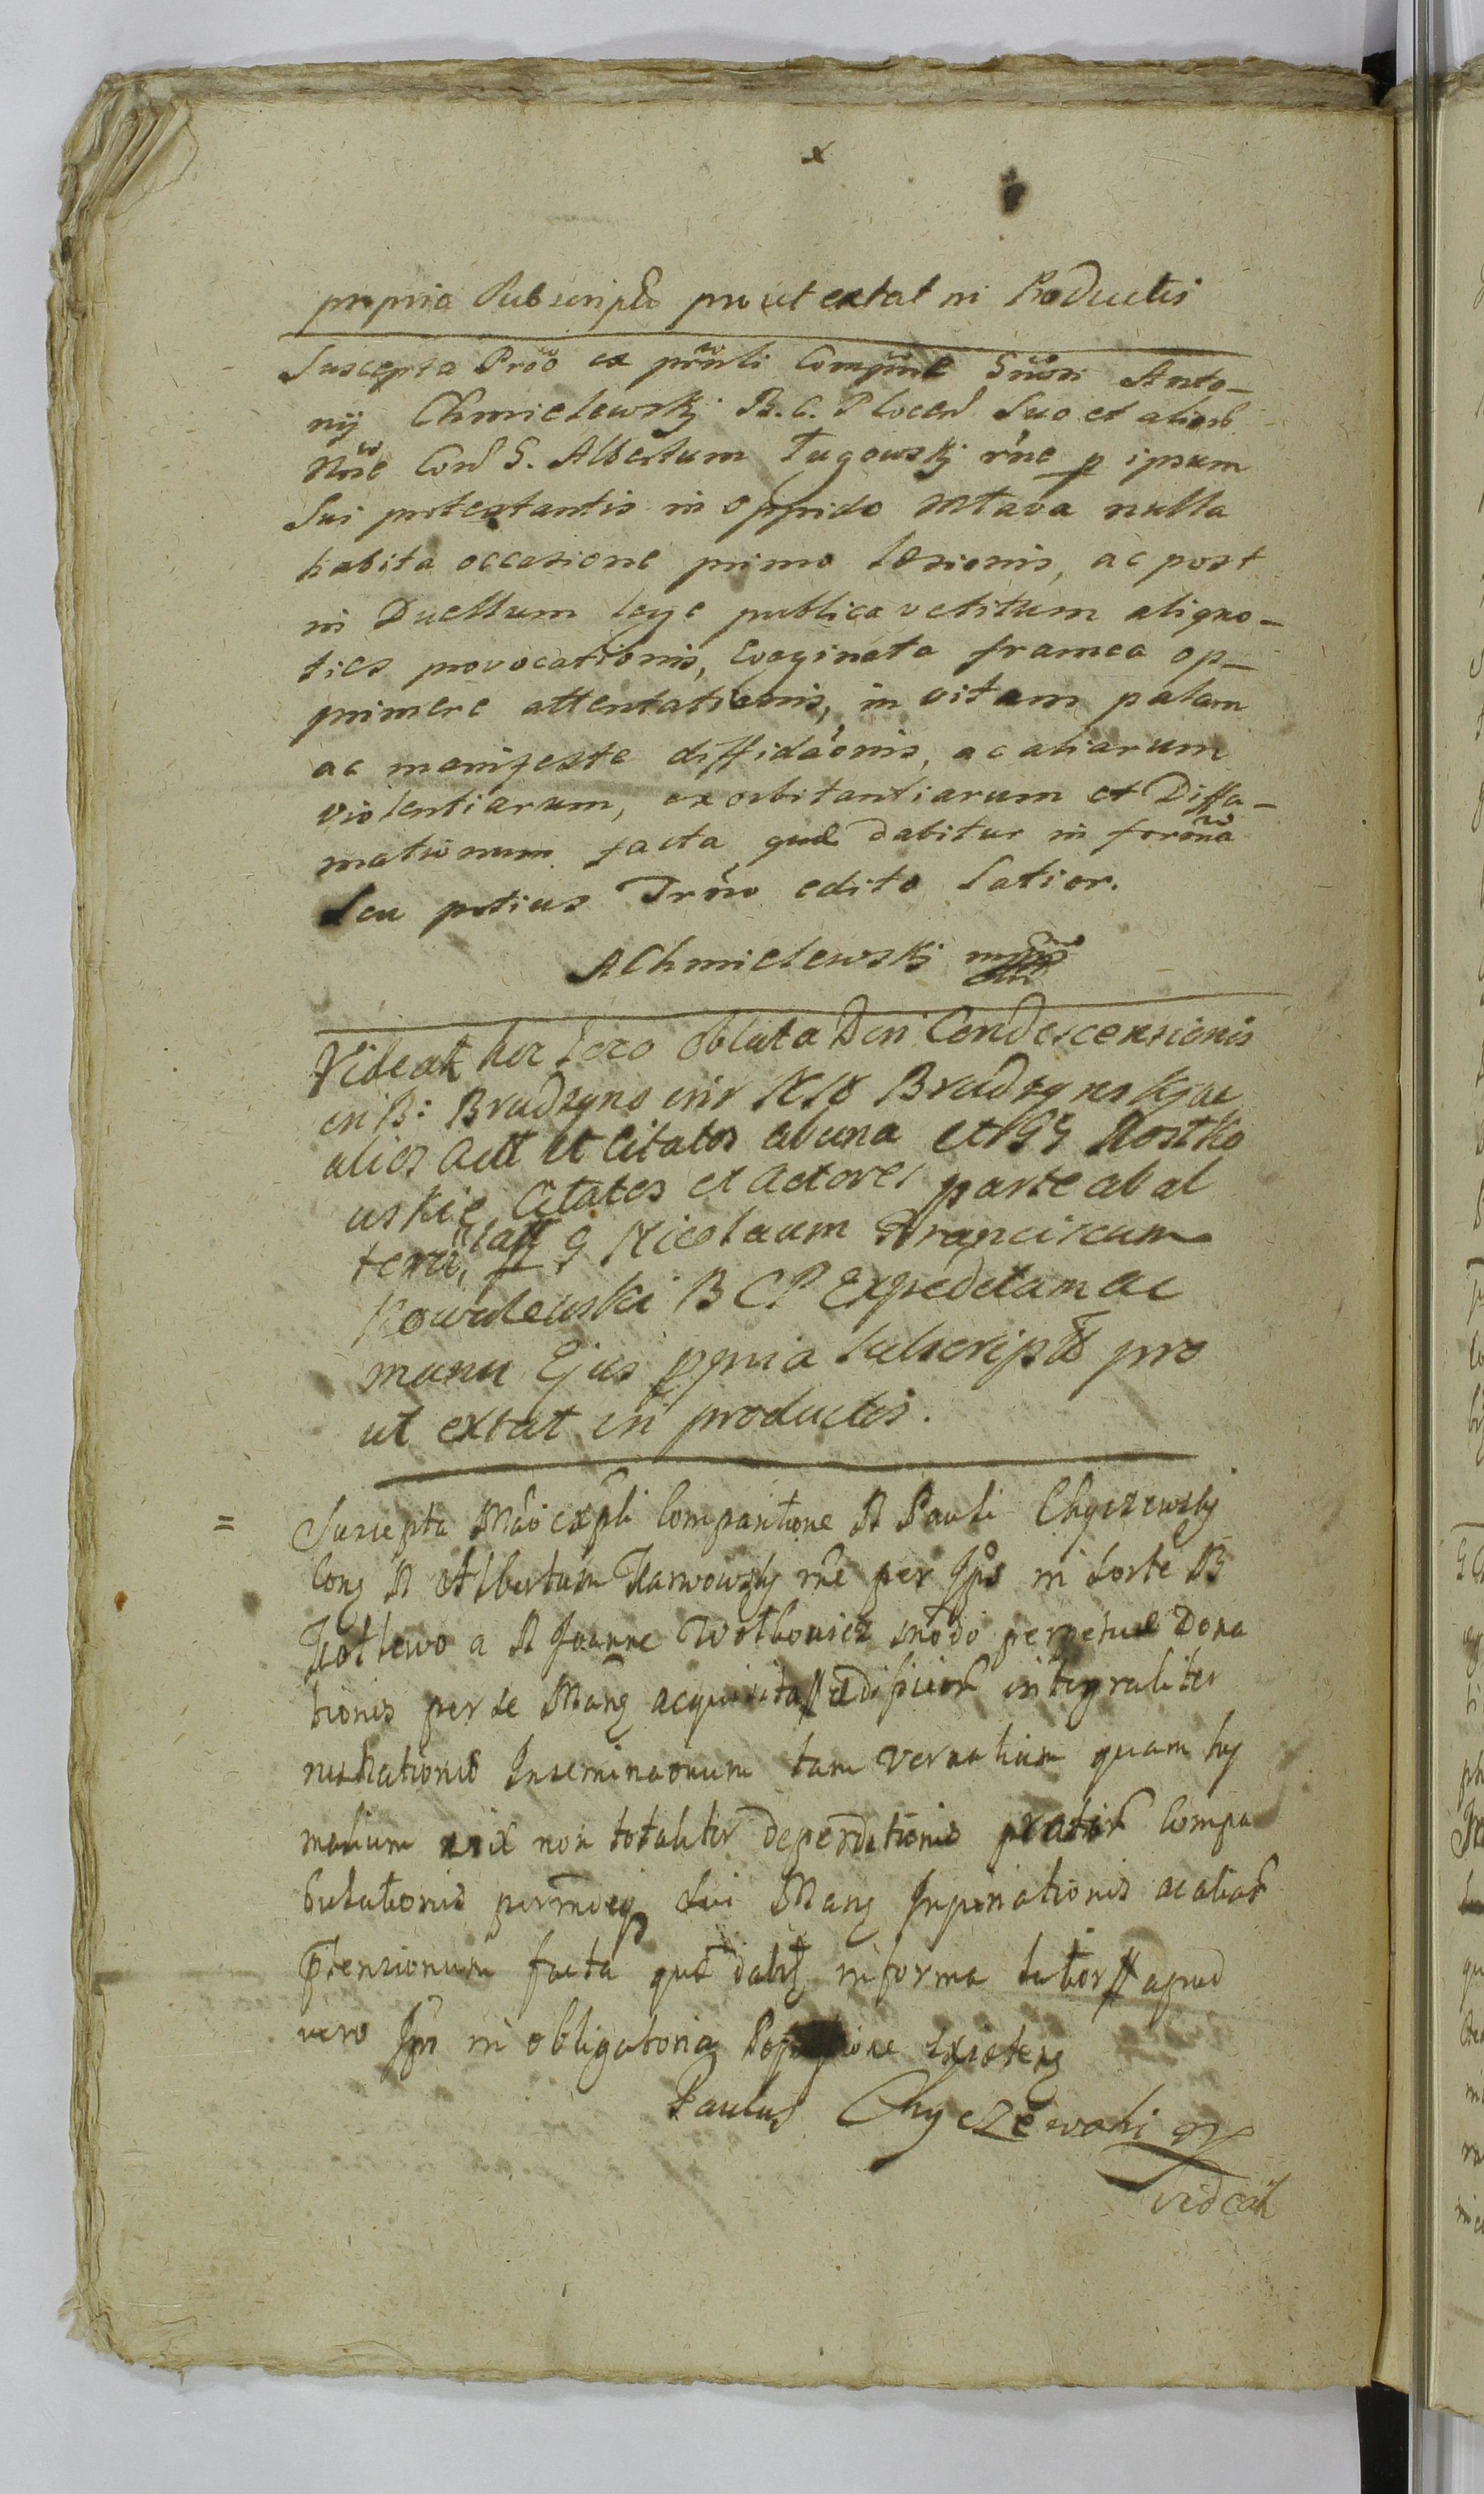 x
propria Subscripta prout extat in Productis
Suscepta Prõo ex pñnti Compñne Gñosi Anto-
nij Chmielewskj B. C. Plocen Suo et alior
Nñe Con G. Albertum Ługowskj rñe p ipsum
Sui protestantis in oppido Mława nulla
habita occasione primo læsionis, ac post
in Duellum lege publica vetitum aliquo-
ties provocationis, Evaginata framea op-
primere attentationis, in vitam palam
ac manifeste diffidaõnis, ac aliarum
violentiarum, exorbitantiarum et Diffa-
mationum facta quæ dabitur in forma
Seu potius Trño edito latior.
AChmielewskj mpp
Videat hic loco oblata Dcri Condescensionis
in B: Brudzyno inr NN Brudzynskje
alios act et Citatos ab una et GG Rostko
wskie Citatos et actores parte ab al
tera, G Nicolaum Franciscum
Kowalewski B C P Expeditam ac
manu Ejus ppria subscripta pro
ut extat in productis.
= Suscepta Mão ex pñti Comparitione N Pauli Chyczewskj
Con N Albertum Karwowskj rñe per Ips in Sorte B
Kotlewo a N Joanne Wotkowicz modo perpetuæ Dona
tionis per se Man acquisita ædificior integraliter
rustationis Inseminaonum tam vernalium quam hy
malium vix non totaliter deperditionis prator Compa
bulationis Sui Man Inpinationis ac aliar
ptensionum facta quæ dabit in forma latior apud
vero Ipm in obligatoria existen
Paulus Chyczewski
Videat